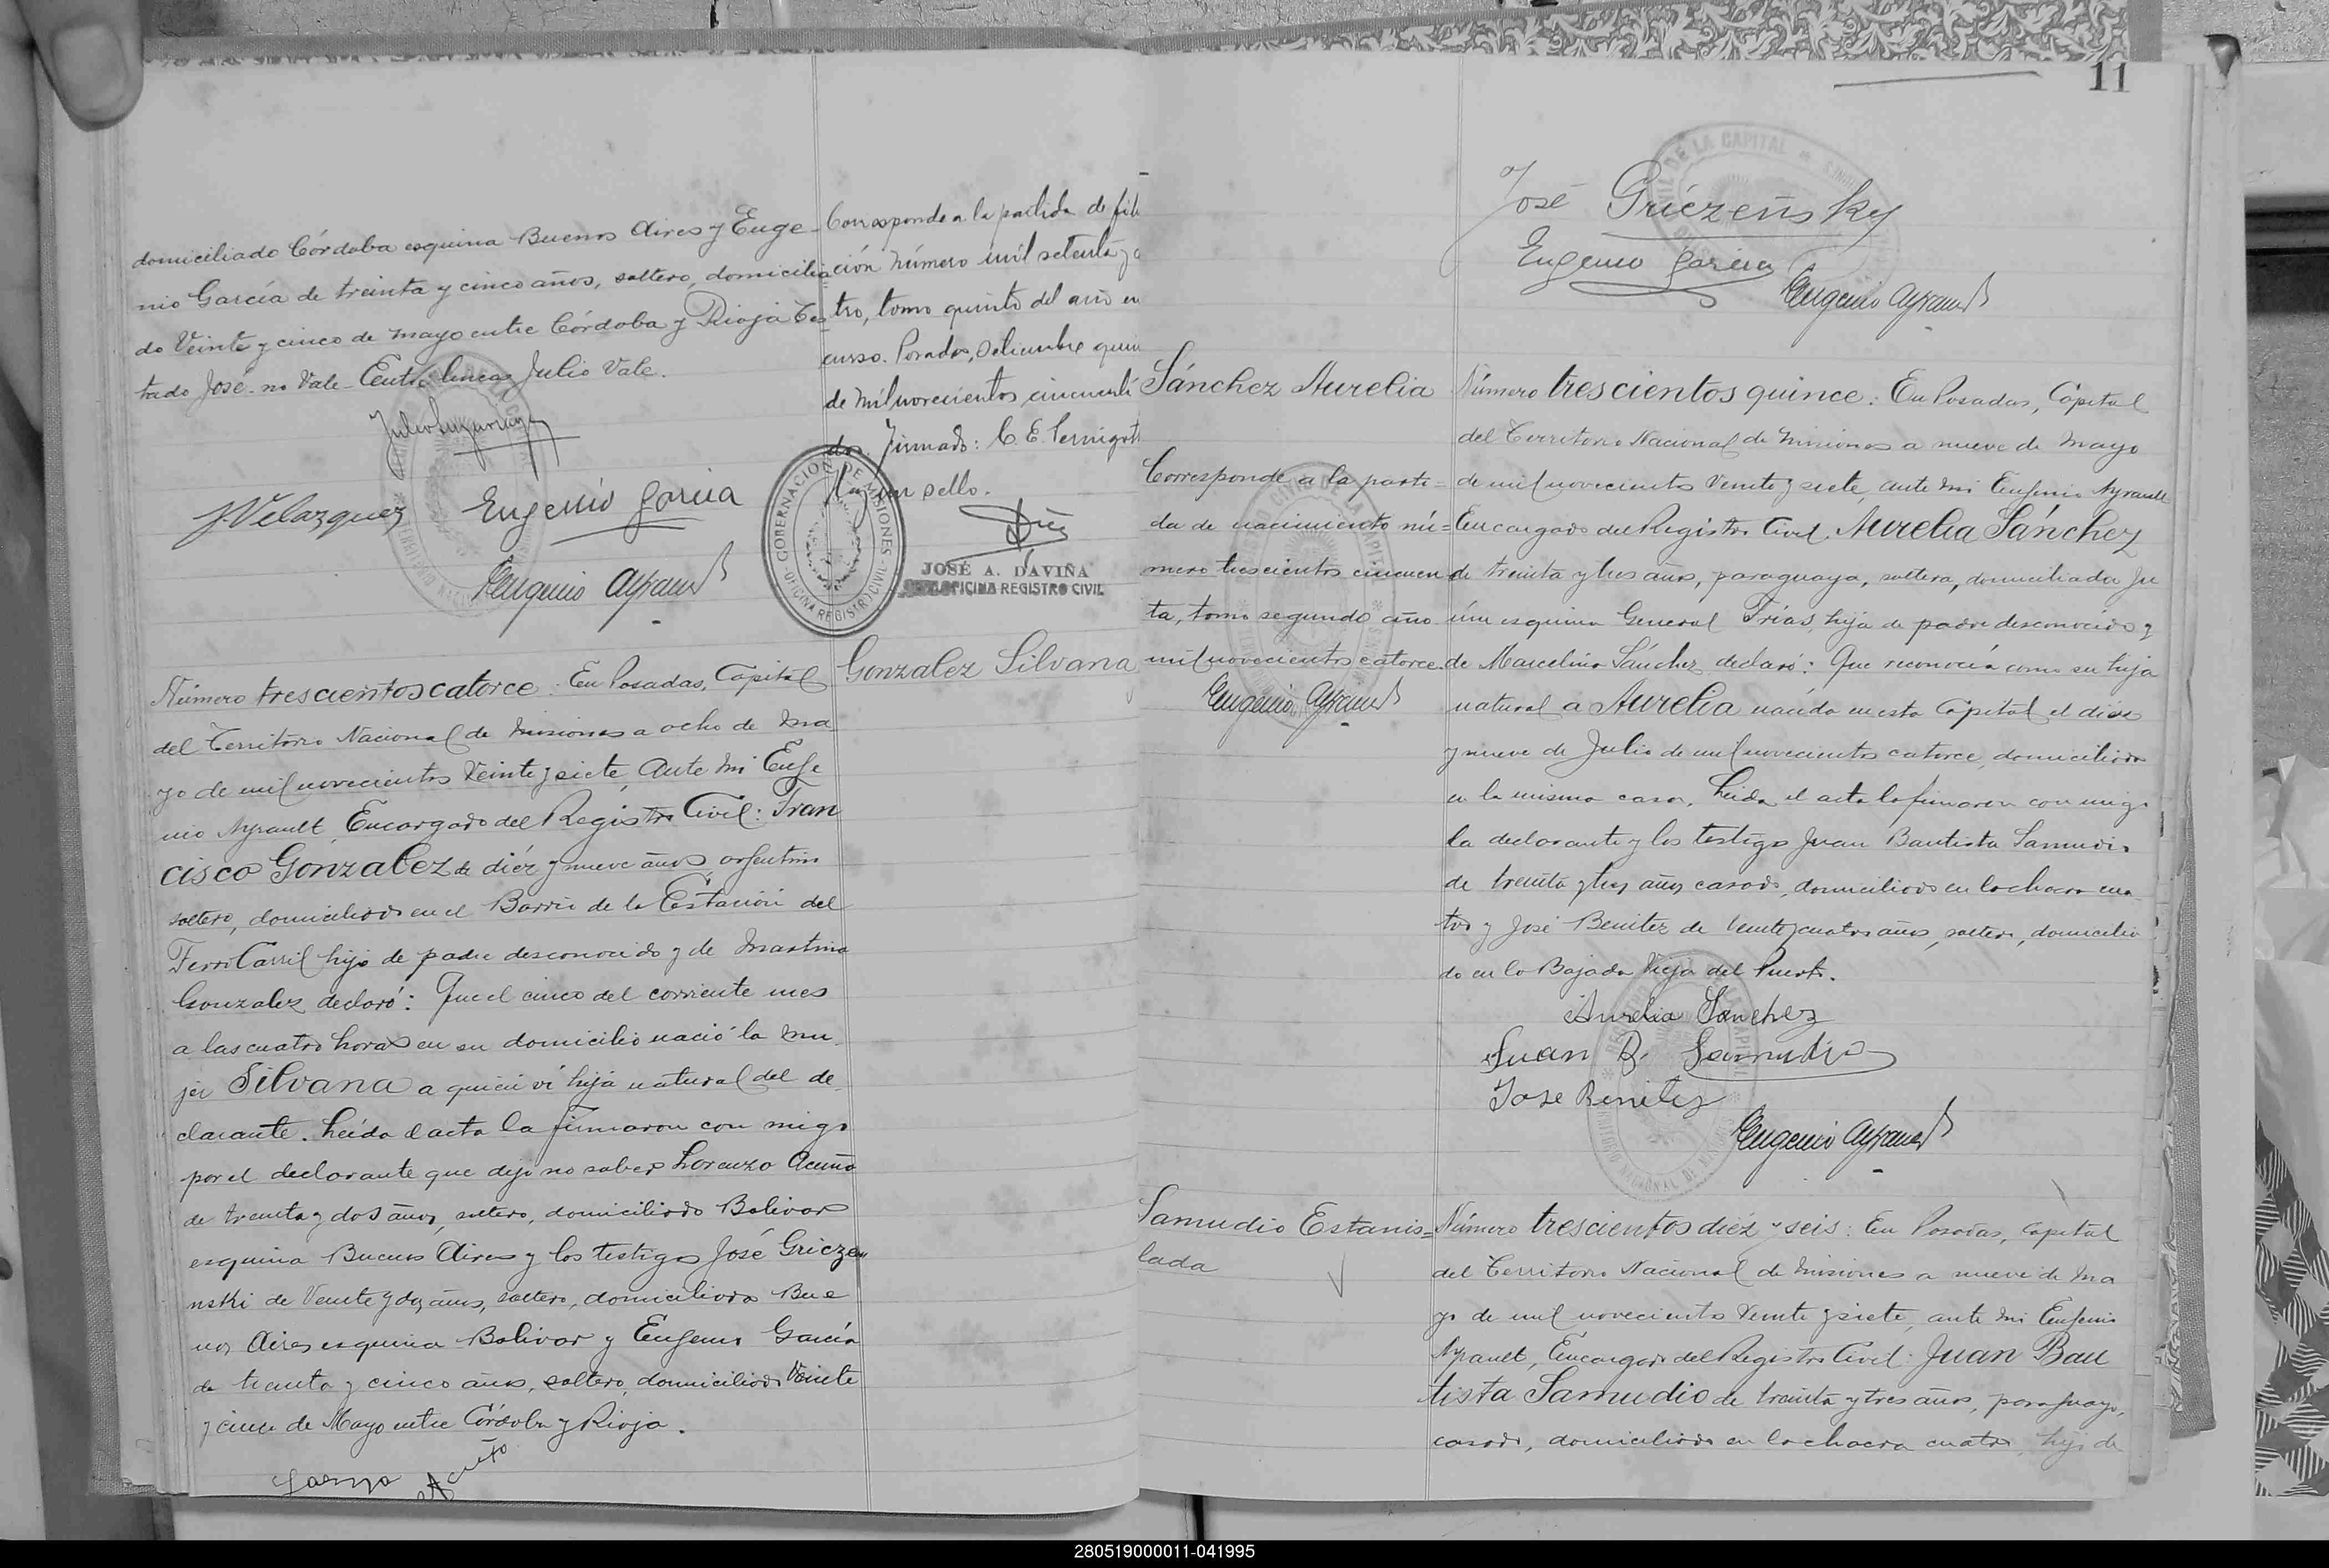 domiciliado Córdoba esquina Buenos Aires y Euge-
nio García de treinta y cinco años, soltero, domicilia
do Veinte y cinco de mayo entre Córdoba y Rioja Tes
tado José no Vale Entre líneas Julio Vale.
J. Velazquez
Eugenio Garcia
Eugenio Ayrault
Corresponde a la partida de
ción número mil setenta y
tro, tomo quinto del año en
curso. Posadas, Setiembre
de mil novecientos
dos. Firmado: C. E.
Hay un sello.
GOBERNACION DE MISIONES
OFICINA REGISTRO CIVIL
JOSÉ A. DAVIÑA
OFICINA REGISTRO CIVIL
Gonzalez Silvana
Número trescientos catorce: En Posadas, Capital
del Territorio Nacional de Misiones a ocho de Ma
yo de mil novecientos Veinte y siete, Ante Mi Euge
nio Ayrault, Encargado del Registro Civil: Fran
cisco Gonzalez de diéz y nueve años argentino
soltero, domiciliado en el Barrio de la Estación del
Ferro Carril hijo de padre desconocido y de Martina
Gonzalez declaró: Que el cinco del corriente mes
a las cuatro horas en su domicilio nació la mu
jer Silvana a quien ví hija natural del de
clarante. Leída el acta la firmaron con migo
por el declarante que dijo no saber Lorenzo Acuña
de treinta y dos años, soltero, domiciliado Bolivar
esquina Buenos Aires y los testigos José Griczen
nski de Veinte y dos años, soltero, domiciliado Bue
nos Aires esquina Bolivar y Eugenio García
de treinta y cinco años, soltero, domiciliado Veinte
y cinco de Mayo entre Córdoba y Rioja.
11
José Griezeñsky
Eugenio Garcia
Eugenio Ayrault
Sánchez Aurelia
Corresponde a la parti-
da de nacimiento nú-
mero trescientos cincuen
ta, tomo segundo año
mil novecientos catorce.
Eugenio Ayrault
Número trescientos quince: En Posadas, Capital
del Territorio Nacional de Misiones a nueve de Mayo
de mil novecientos Veinte y siete, ante mi Eugenio Ayrault
Encargado del Registro Civil. Aurelia Sánchez
de treinta y tres años, paraguaya, soltera, domiciliada Ju
nín esquina General Frías, hija de padre desconocido y
de Marcelina Sánchez declaró: Que reconocía como su hija
natural a Aurelia nacida en esta Capital el diez
y nueve de Julio de mil novecientos catorce, domiciliada
en la misma casa. Leída el acta la firmaron con migo
la declarante y los testigos Juan Bautista Samudio
de treinta y tres años casado, domiciliado en la chacra cua
tro y José Benitez de Veinte y cuatro años, soltero, domicilia
do en la Bajada Vieja del Puerto.
Aurelia Sanchez
Juan B. Samudio
Jose Benitez
Eugenio Ayrault
Samudio Estanis-
lada
Número trescientos diéz y seis: En Posadas, Capital
del Territorio Nacional de Misiones a nueve de Ma
yo de mil novecientos Veinte y siete, ante mi Eugenio
Ayrault, Encargado del Registro Civil: Juan Bau
tista Samudio de treinta y tres años, paraguayo,
casado, domiciliado en la chacra cuatro, hijo de
280519000011-041995